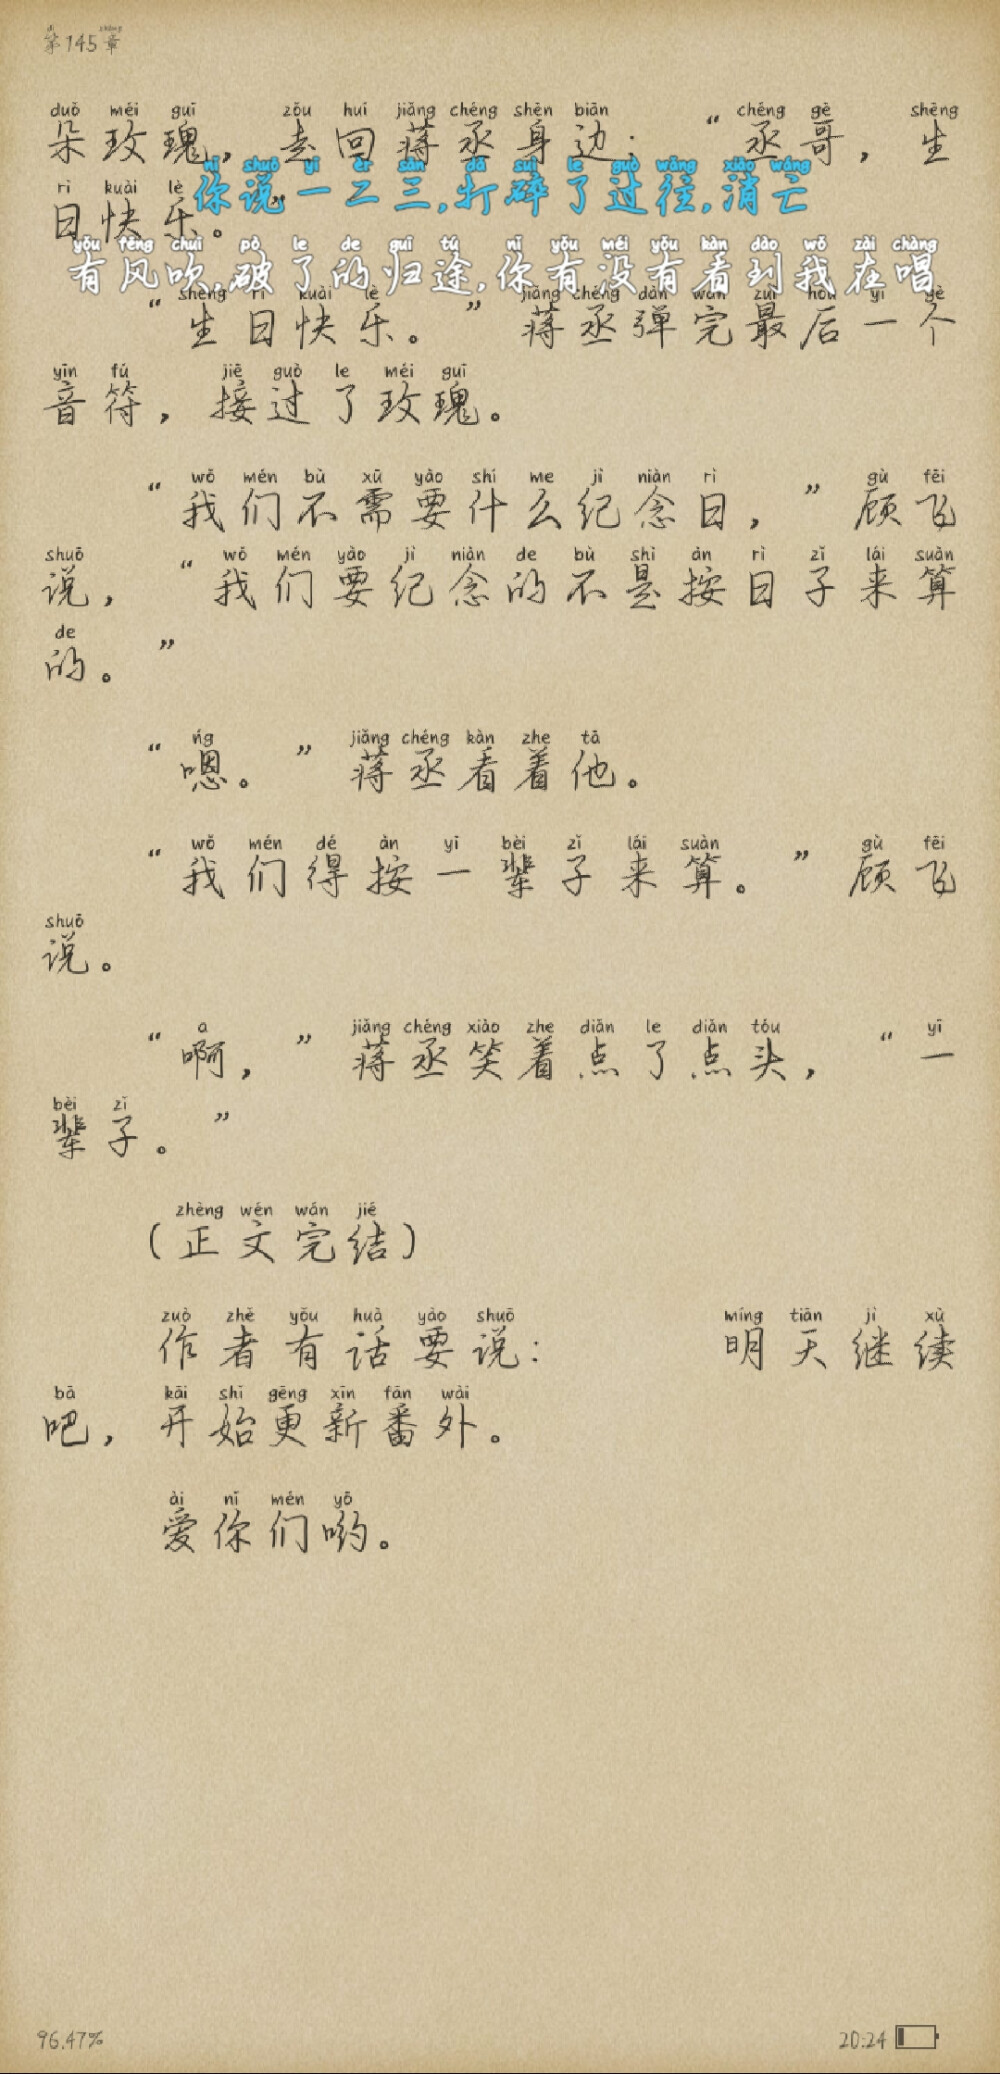 第145章
朵玫瑰，走回蒋丞身边：“丞哥，生
日快乐。”
你说一二三,打碎了过往,消亡
有风吹,破了的归途,你有没有看到我在唱
“生日快乐。”蒋丞弹完最后一个
音符，接过了玫瑰。
“我们不需要什么纪念日，”顾飞
说，“我们要纪念的不是按日子来算
的。”
“嗯。”蒋丞看着他。
“我们得按一辈子来算。”顾飞
说。
“啊，”蒋丞笑着点了点头，“一
辈子。”
（正文完结）
作者有话要说： 明天继续
吧，开始更新番外。
爱你们哟。
96.47% 20:24